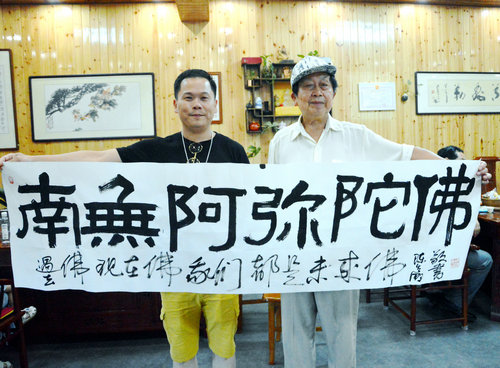 南無阿弥陀佛
過去佛现在佛我们都是未来佛
敬書